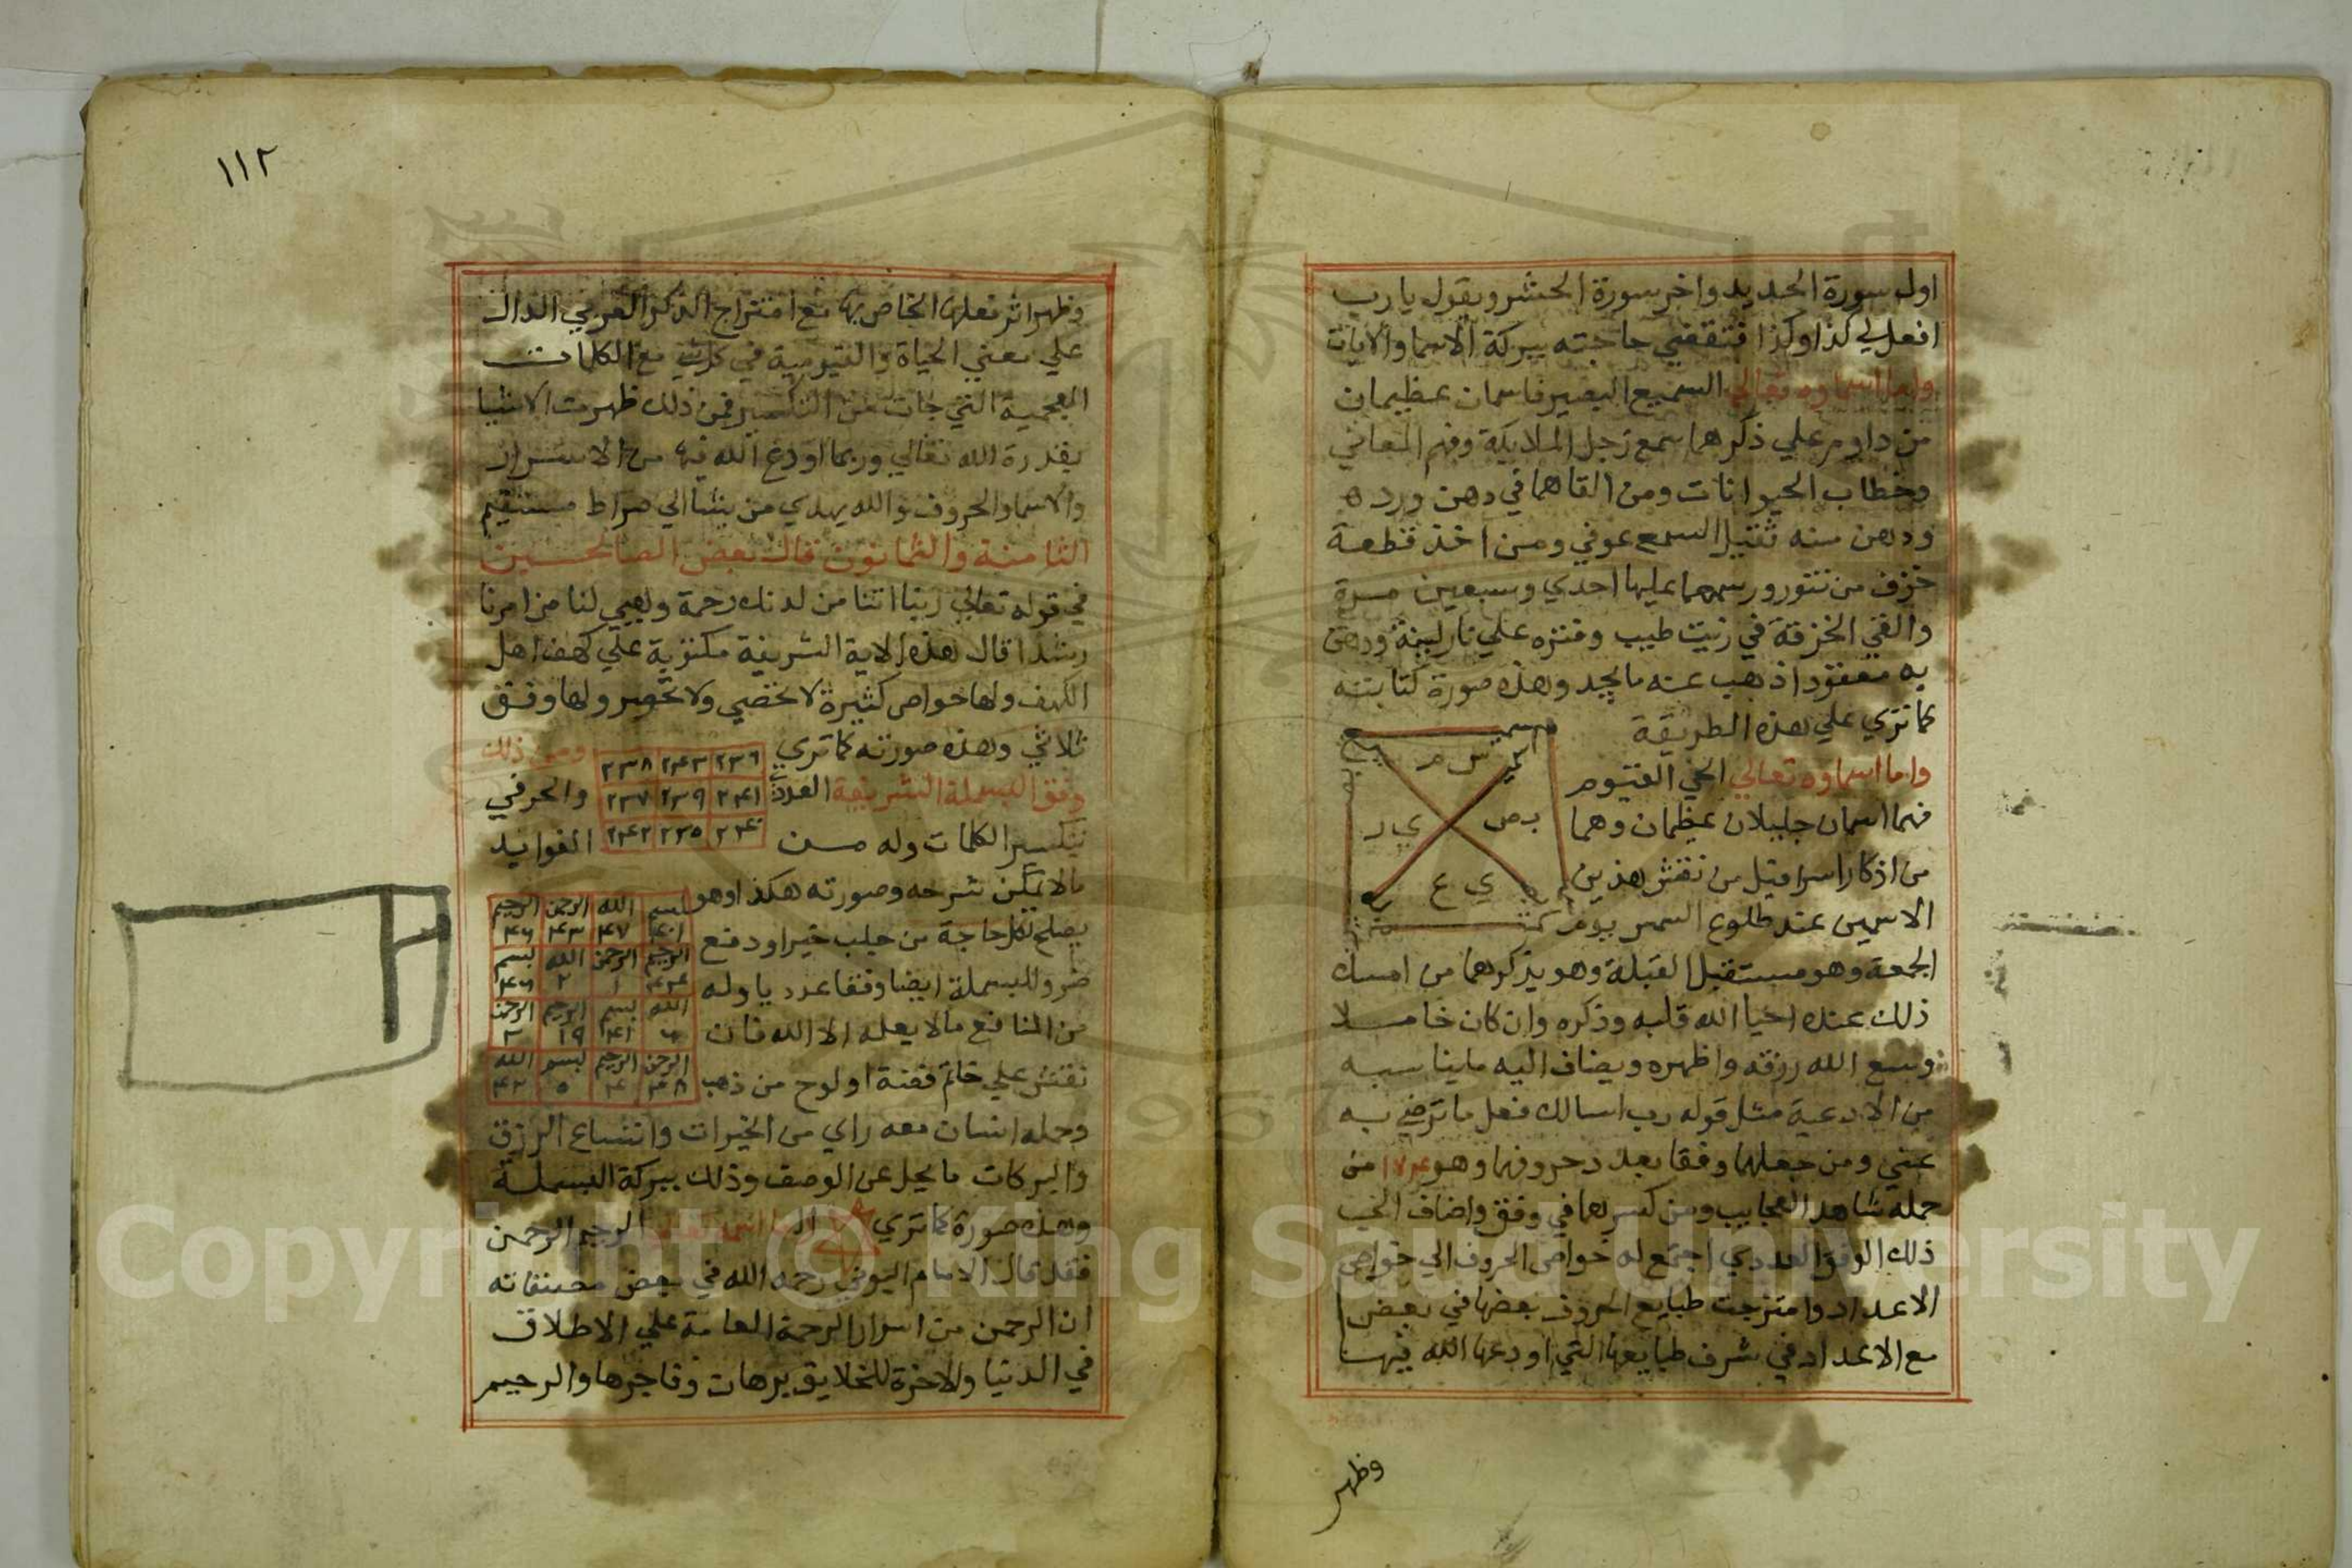 اول سورة الحديد واخر سورة الحشر ويقول يا رب
افعل لي كذا وكذا فتقضي حاجته ببركة الاسما والايات
واما اسماوه تعالي السميع البصير فاسمان عظيمان
من داوم علي ذكرهما سمع زجل الملايكة وفهم المعاني
وخطاب الحيوانات ومن القاهما في دهن ورده
ودهن منه ثقيل السمع عوفي ومن اخذ قطعة
خزف من تنور ورسمهما عليها احدي وسبعين مرة
والقي الخزفة في زيت طيب وفتره علي نار لينة ودهن
به معقود اذهب عنه ما يجد وهذه صورة كتابته
كما تري علي هذه الطريقة
واما اسماوه تعالي الحي القيوم
فهما اسمان جليلان عظيمان وهما
من اذكار اسرافيل من نقش هذين
الاسمين عند طلوع الشمس يوم
الجمعة وهو مستقبل القبلة وهو يذكرهما من امسك
ذلك عنده احيا الله قلبه وذكره وان كان خاملا
وسع الله رزقه واظهره ويضاف اليه ما يناسبه
من الادعية مثل قوله رب اسالك فعل ما ترضي به
عني ومن جعلهما وفقا بعدد حروفهما وهو ١٧٤ من
حمله شاهد العجايب ومن كسرهما في وفق واضاف الي
ذلك الوفق العددي اجتمع له خواص الحروف الي خواص
الاعداد وامتزجت طبايع الحروف بعضها في بعض
مع الاعداد في شرف طبايعها التي اودعها الله فيها
وظهر
١١٢
وظهر اثر فعلها الخاص بها مع امتزاج الذكر العربي الدال
علي معني الحياة والقيومية في كل شي مع الكلمات
العجمية التي جات من التكسير فمن ذلك ظهرت الاشيا
بقدرة الله تعالي وربما اودع الله فيها من الاسرار
والاسما والحروف والله يهدي من يشا الي صراط مستقيم
الثامنة والثمانون قال بعض الصالحين
في قوله تعالي ربنا اتنا من لدنك رحمة وهيي لنا من امرنا
رشدا قال هذه الاية الشريفة مكتوبة علي كهف اهل
الكهف ولها خواص كثيرة لا تحصي ولا تحصر ولها وفق
ثلاثي وهذه صورته كما تري ومن ذلك
٢٣٦ ٢٤٣ ٢٣٨
وفق البسملة الشريفة العددي والحرفي
٢٤١ ٢٣٩ ٢٣٧
بتكسير الكلمات وله من الفوايد
٢٤٠ ٢٣٥ ٢٤٢
ما لا يمكن شرحه وصورته هكذا وهو
بسم الله الرحمن الرحيم
يصلح لكل حاجة من جلب خير او دفع
الرحيم الرحمن الله بسم
ضر وللبسملة ايضا وفقا عدديا وله
الله بسم الرحيم الرحمن
من المنافع ما لا يعلمه الا الله فان
الرحمن الرحيم بسم الله
نقش علي خاتم فضة او لوح من ذهب
وحمله انسان معه راي من الخيرات واتساع الرزق
والبركات ما يجل عن الوصف وذلك ببركة البسملة
وهذه صورة كما تري الرحيم الرحمن
فقد قال الامام البوني رحمه الله في بعض مصنفاته
ان الرحمن من اسرار الرحمة العامة علي الاطلاق
في الدنيا والاخرة للخلايق برها وفاجرها والرحيم
Copyright © King Saud University
1957